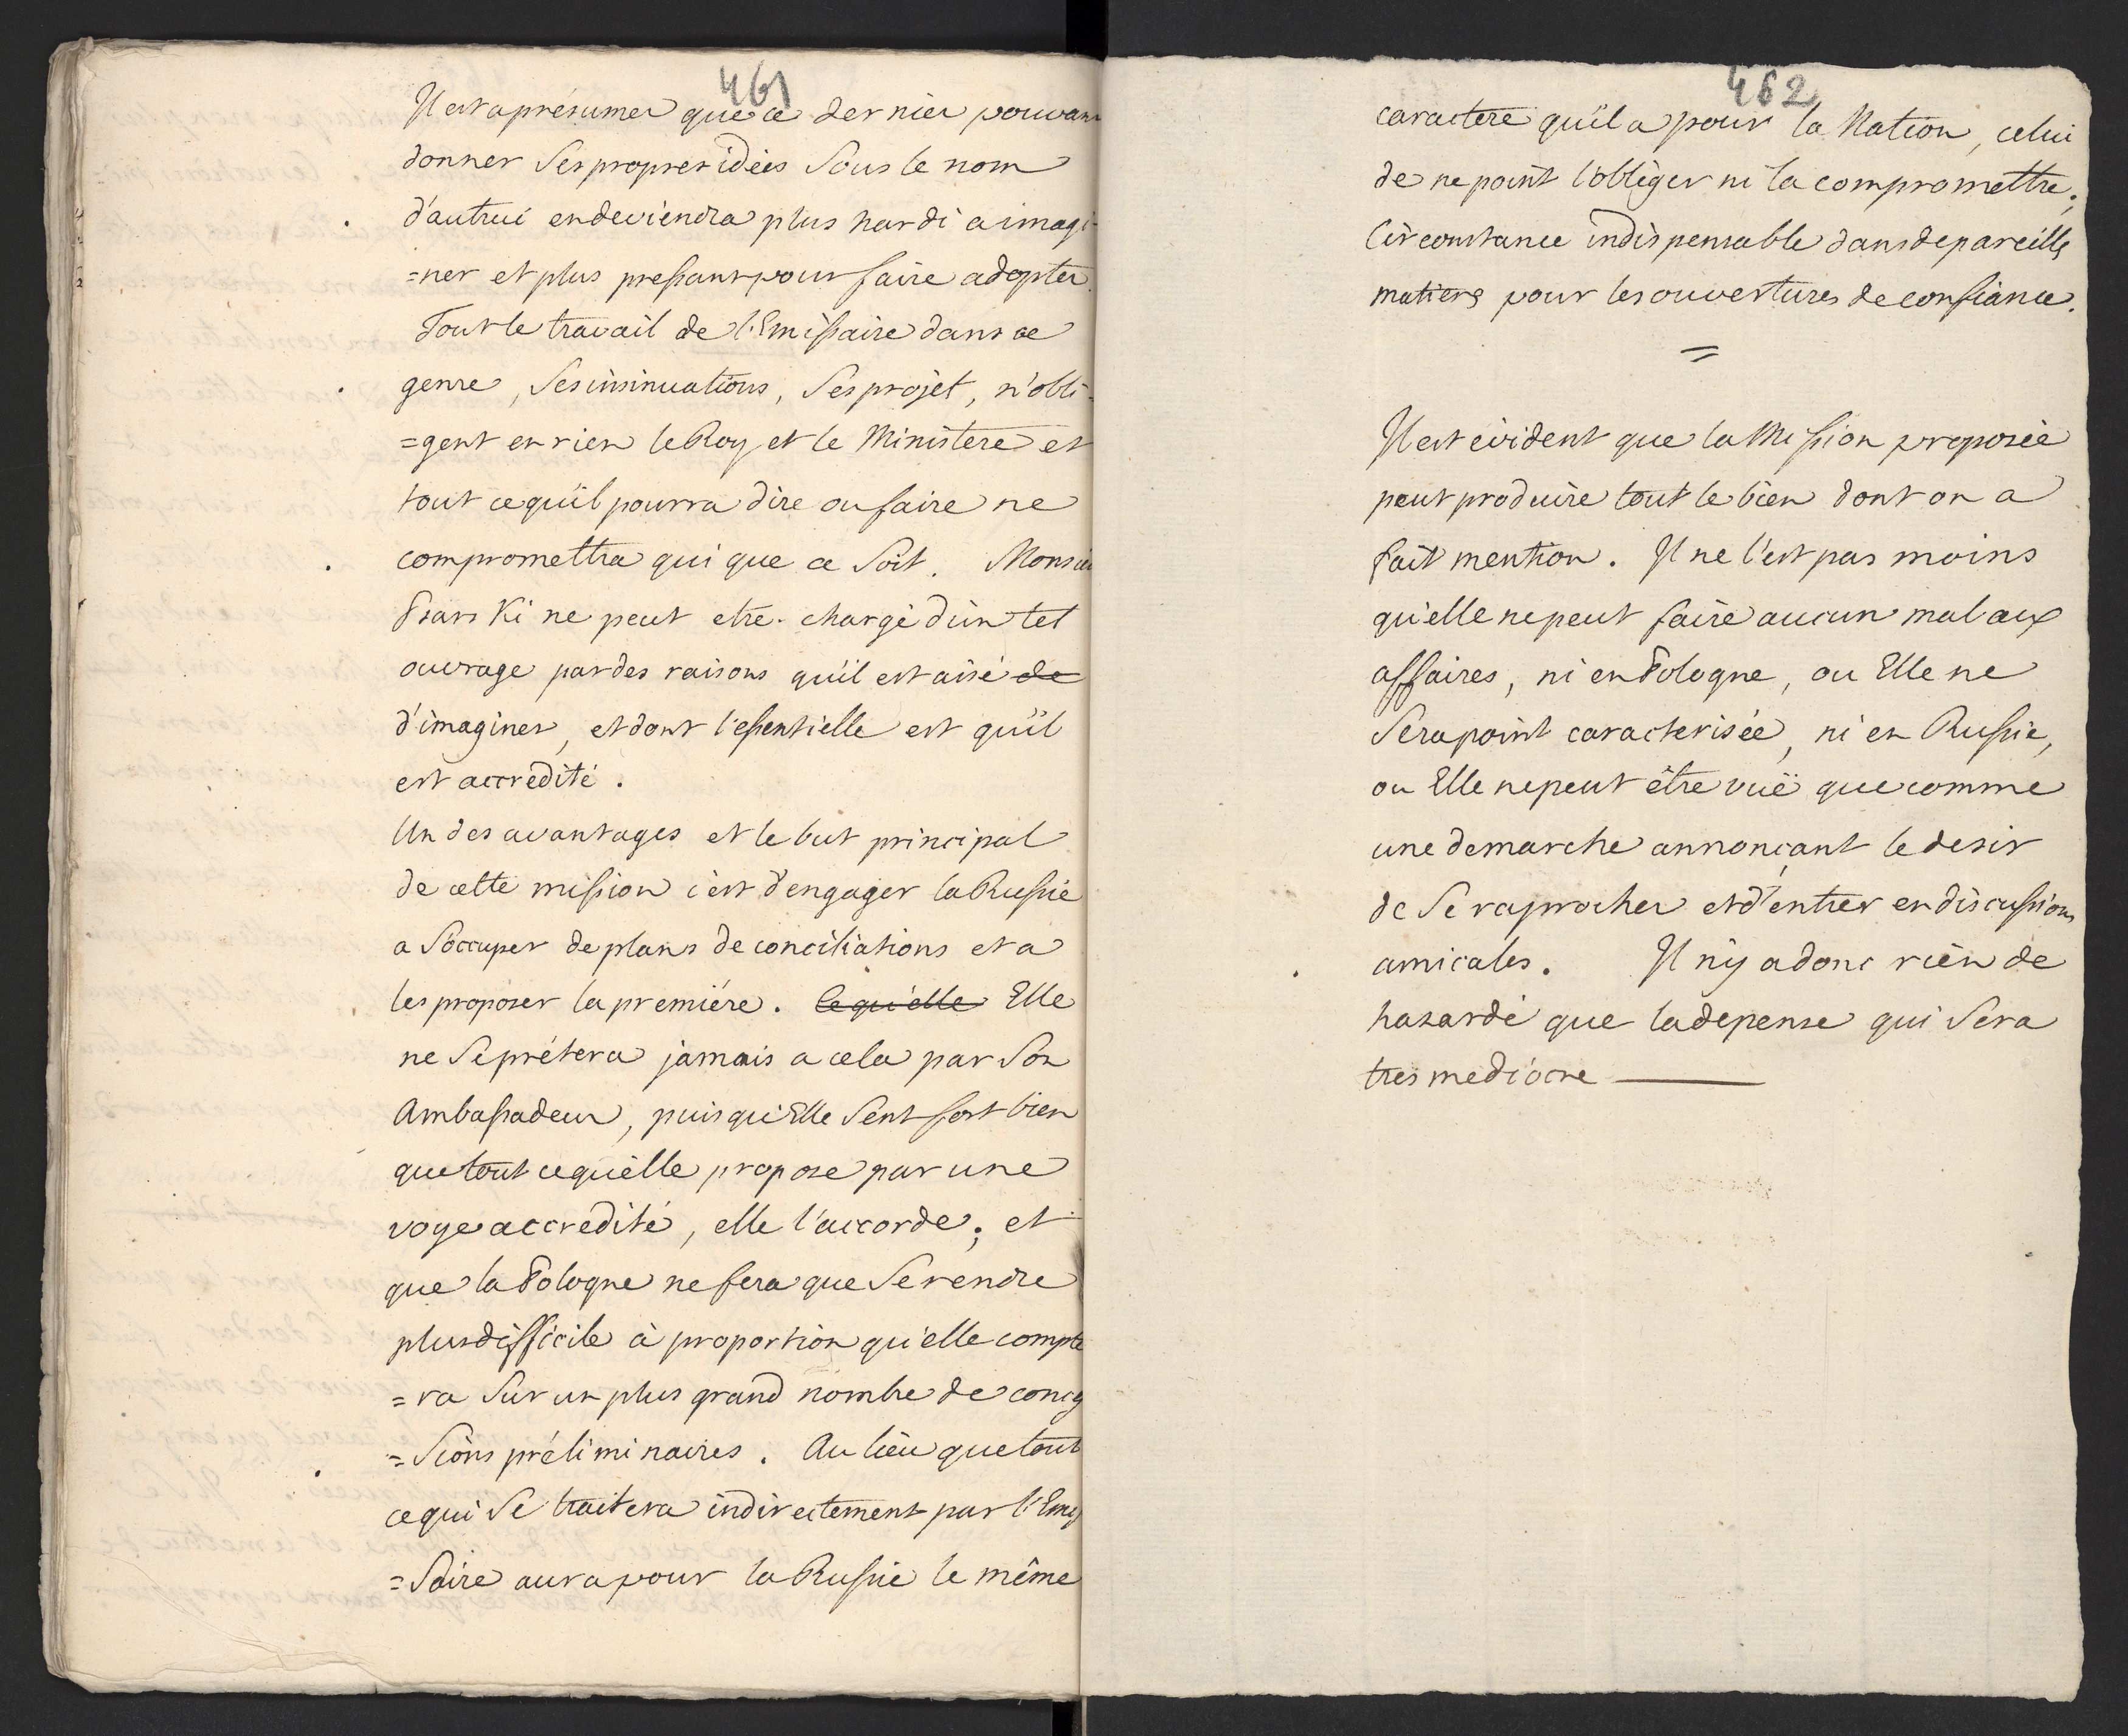 461
Il est a présumer que ce dernier pouvant
donner Ses propres idées Sous le nom
d'autrui en deviendra plus hardi a imagi-
=ner et plus pressant pour faire adopter.
Tout le travail de l'Emissaire dans ce
genre, Ses insinuations, Ses projet, n'obli-
=gent en rien le Roy et le Ministere et
tout ce qu'il pourra dire ou faire ne
compromettra qui que ce Soit. Monsieur
Psarski ne peut etre chargé d'un tel
ouvrage par des raisons qu'il est aisé de
d'imaginer, et dont l'essentielle est qu'il
est accrédité.
Un des avantages et le but principal
de cette mission c'est d'engager la Russie
a S'occuper de plans de conciliations et a
les proposer la premiére. Ce qu'elle Elle
ne Se prétera jamais a cela par Son
Ambassadeur, puisqu'Elle Sent fort bien
que tout ce qu'elle propose par une
voye accredité, elle l'accorde; et
que la Pologne ne fera que Se rendre
plus difficile à proportion qu'elle compte
=ra Sur un plus grand nombre de conces
=Sions préliminaires. Au lieu que tout
ce qui Se traitera indirectement par l'Emis
=Saire aura pour la Russie le même
462
caractere qu'il a pour la Nation, celui
de ne point l'obliger ni la compromettre;
Circonstance indispensable dans de pareilles
matiers pour les ouvertures de confiance.
=
Il est évident que la Mission proposée
peut produire tout le bien dont on a
fait mention. Il ne l'est pas moins
qu'elle ne peut faire aucun mal aux
affaires, ni en Pologne, ou Elle ne
Sera point caracterisée, ni en Russie,
ou Elle ne peut être vuë que comme
une demarche annonçant le desir
de Se raprocher et d'entrer en discussions
amicales. Il n'y a donc rien de
hasardé que la depense qui Sera
tres mediocre